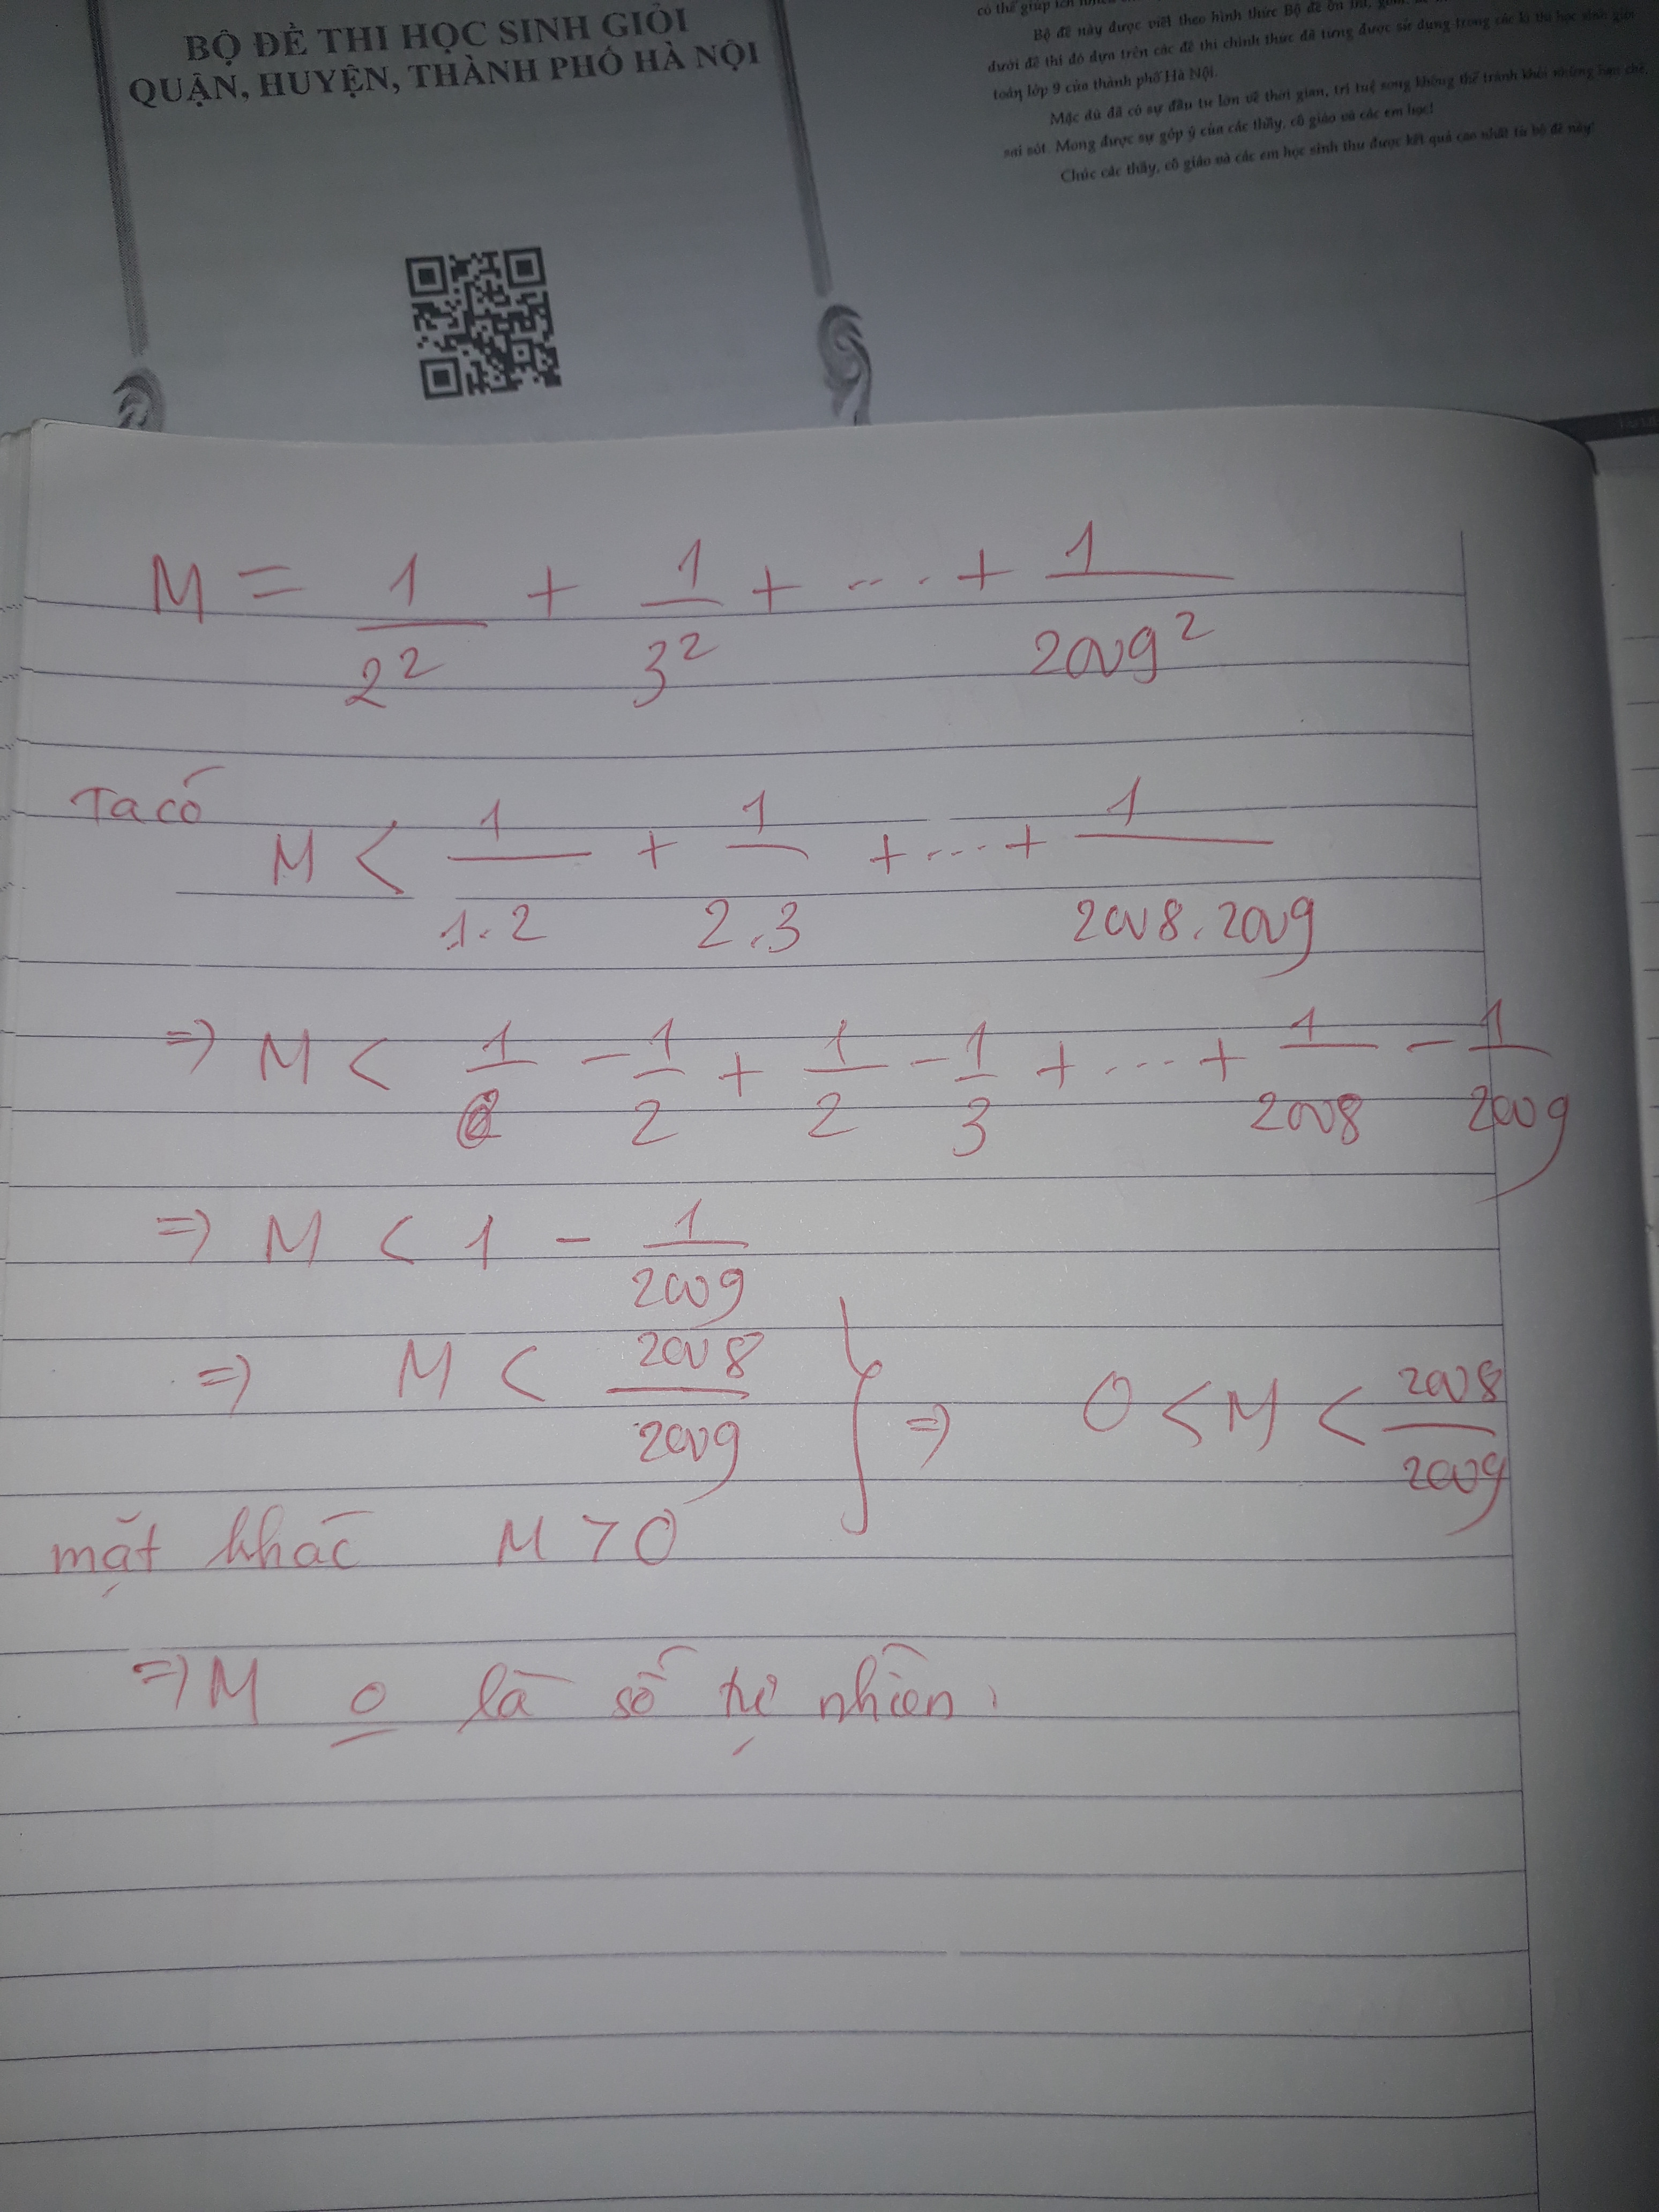 BỘ ĐỀ THI HỌC SINH GIỎI
QUẬN, HUYỆN, THÀNH PHỐ HÀ NỘI
có thể giúp ích
Bộ đề này được viết theo hình thức Bộ đề ôn thi,
dưới đề thi đó dựa trên các đề thi chính thức đã từng được sử dụng trong các kì thi học sinh giỏi
toán lớp 9 của thành phố Hà Nội.
Mặc dù đã có sự đầu tư lớn về thời gian, trí tuệ song không thể tránh khỏi những hạn chế,
sai sót. Mong được sự góp ý của các thầy, cô giáo và các em học!
Chúc các thầy, cô giáo và các em học sinh thu được kết quả cao nhất từ bộ đề này!
M = 1/2² + 1/3² + ... + 1/2009²
Ta có
M < 1/1.2 + 1/2.3 + ... + 1/2008.2009
=> M < 1/1 - 1/2 + 1/2 - 1/3 + ... + 1/2008 - 1/2009
=> M < 1 - 1/2009
=> M < 2008/2009
mặt khác M > 0
=> 0 < M < 2008/2009
=> M o là số tự nhiên.